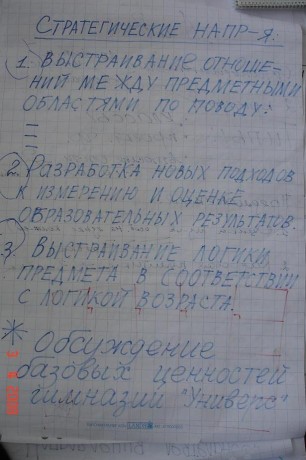 СТРАТЕГИЧЕСКИЕ НАПР-Я:
1. ВЫСТРАИВАНИЕ ОТНОШЕ-
НИЙ МЕЖДУ ПРЕДМЕТНЫМИ
ОБЛАСТЯМИ ПО ПОВОДУ:
2. РАЗРАБОТКА НОВЫХ ПОДХОДОВ
К ИЗМЕРЕНИЮ И ОЦЕНКЕ
ОБРАЗОВАТЕЛЬНЫХ РЕЗУЛЬТАТОВ.
3. ВЫСТРАИВАНИЕ ЛОГИКИ
ПРЕДМЕТА В СООТВЕТСТВИИ
С ЛОГИКОЙ ВОЗРАСТА.
* Обсуждение
базовых ценностей
гимназии "Универс"